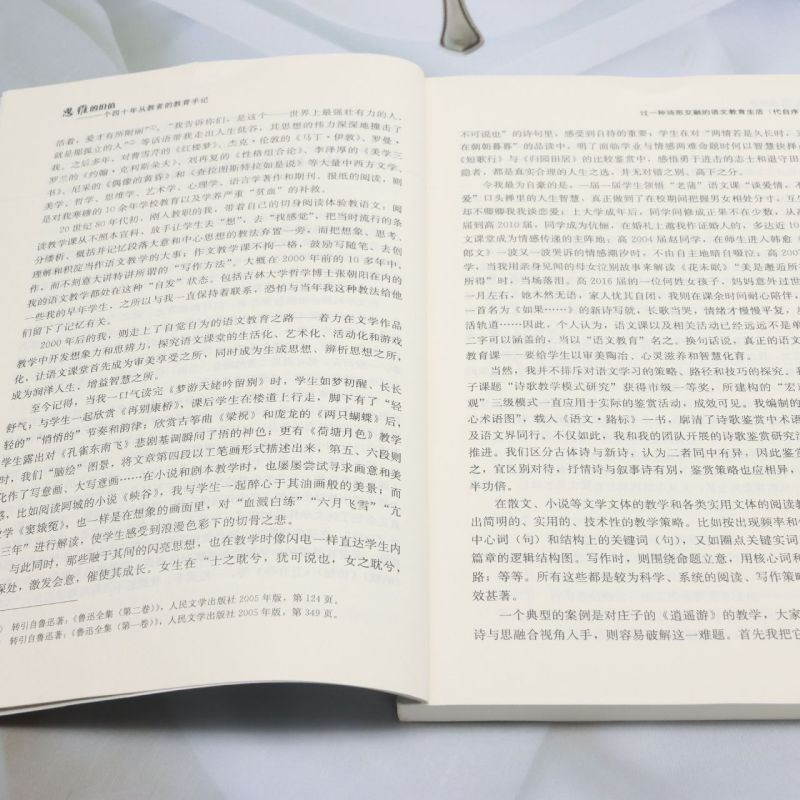 思维的价值
——一个四十年从教者的教育手记
活着，爱才有所附丽”①，“我告诉你们，是这个——世界上最强壮有力的人，
就是那孤立的人”② 等话语带我走出人生低谷，其思想的伟力深深地撞击了
我。之后多年，对曹雪芹的《红楼梦》、杰克·伦敦的《马丁·伊敦》、罗曼·
罗兰的《约翰·克利斯朵夫》、刘再复的《性格组合论》、李泽厚的《美学三
书》、尼采的《偶像的黄昏》和《查拉图斯特拉如是说》等大量中西方文学、
美学、哲学、思维学、艺术学、心理学、语言学著作和期刊、报纸的阅读，则
是对我寒碜的 10 余年学校教育以及学养严重“贫血”的补救。
20 世纪 80 年代初，刚入教职的我，带着自己的切身阅读体验教语文，阅
读教学课从不照本宣科，放手让学生去“想”，去“找感觉”，把当时流行的条
分缕析、概括并记忆段落大意和中心思想的教法弃置一旁，而把想象、思考、
理解和积淀当作语文教学的大事；作文教学课不拘一格，鼓励写随笔、去创
作，而不刻意大讲特讲所谓的“写作方法”。大概在 2000 年前的 10 多年中，
我的语文教学都处在这种“自发”状态。包括吉林大学哲学博士张朝阳在内的
一些我的早年学生，之所以与我一直保持着联系，恐怕与当年我这种教法给他
们留下了记忆有关。
2000 年后的我，则走上了自觉自为的语文教育之路——着力在文学作品
教学中开发想象力和思辨力，探究语文课堂的生活化、艺术化、活动化和游戏
化，让语文课堂首先成为审美享受之所，同时成为生成思想、辨析思想之所，
成为润泽人生、增益智慧之所。
至今记得，当我一口气读完《梦游天姥吟留别》时，学生如梦初醒、长长
舒气；与学生一起欣赏《再别康桥》，课后学生在楼道上行走，脚下有了“轻
轻的”“悄悄的”节奏和韵律；欣赏古筝曲《梁祝》和庞龙的《两只蝴蝶》后，
学生露出对《孔雀东南飞》悲剧基调瞬间了悟的神色；更有《荷塘月色》教学
时，我们“脑绘”图景，将文章第四段以工笔画形式描述出来，第五、六段则
化作了写意画、大写意画……在小说和剧本教学时，也屡屡尝试寻求画意和美
感，比如阅读阿城的小说《峡谷》，我与学生一起醉心于其油画般的美景；而
教学《窦娥冤》，也一样是在想象的画面里，对“血溅白练”“六月飞雪”“亢
旱三年”进行解读，使学生感受到浪漫色彩下的切骨之悲。
与此同时，那些融于其间的闪亮思想，也在教学时像闪电一样直达学生内
心深处，激发会意，催使其成长。女生在“士之耽兮，犹可说也，女之耽兮，
① 转引自鲁迅著：《鲁迅全集（第二卷）》，人民文学出版社 2005 年版，第 124 页。
② 转引自鲁迅著：《鲁迅全集（第一卷）》，人民文学出版社 2005 年版，第 349 页。
过一种诗思交融的语文教育生活（代自序
不可说也”的诗句里，感受到自持的重要；学生在对“两情若是久长时，
在朝朝暮暮”的品读中，明了面临学业与情感两难命题时何以智慧抉择
《短歌行》与《归园田居》的比较鉴赏中，感悟勇于进击的志士和退守田
隐者，都是真实合理的人生之选，并无对错之别、高下之分。
令我最为自豪的是，一届一届学生领悟“老蒲”语文课“谈爱情，不
爱”口头禅里的人生智慧，真正做到了在校期间把握男女相处分寸，互
却不卿卿我我谈恋爱；上大学成年后，同学间修成正果不在少数，从
届到高 2010 届，同学成为伉俪，在婚礼上邀我作证婚人的，多达近 10
文课堂成为情感传递的主阵地：高 2004 届赵同学，在师生进入韩愈《
郎文》一波又一波哭诉的情感潮汐时，不由自主地暗自啜泣；高 200
学，当我用亲身见闻的母女泣别故事来解读《花未眠》“美是邂逅所
所得”时，当场落泪。高 2016 届的一位何姓女孩子，妈妈意外过世
一月左右，她木然无语，家人忧其自闭，我则在课余时间耐心陪伴，
一首名为《如果……》的新诗写就，长歌当哭，情绪才慢慢平复，
活轨道……因此，个人认为，语文课以及相关活动已经远远不是单
二字可以涵盖的，当以“语文教育”名之。换句话说，真正的语文
教育课——要给学生以审美陶冶、心灵滋养和智慧化育。
当然，我并不排斥对语文学习的策略、路径和技巧的探究。我
子课题“诗歌教学模式研究”获得市级一等奖，所建构的“宏
观”三级模式一直应用于实际的鉴赏活动，成效可见。我编制的
心术语图”，载入《语文·路标》一书，廓清了诗歌鉴赏中术语
及语文界同行。不仅如此，我和我的团队开展的诗歌鉴赏研究
推进。我们区分古体诗与新诗，认为二者同中有异，因此鉴赏
之，宜区别对待，抒情诗与叙事诗有别，鉴赏策略也应相异，
半功倍。
在散文、小说等文学文体的教学和各类实用文体的阅读教
出简明的、实用的、技术性的教学策略。比如按出现频率和
中心词（句）和结构上的关键词（句），又如圈点关键实词
篇章的逻辑结构图。写作时，则围绕命题立意，用核心词和
路；等等。所有这些都是较为科学、系统的阅读、写作策略
效甚著。
一个典型的案例是对庄子的《逍遥游》的教学，大家
诗与思融合视角入手，则容易破解这一难题。首先我把它